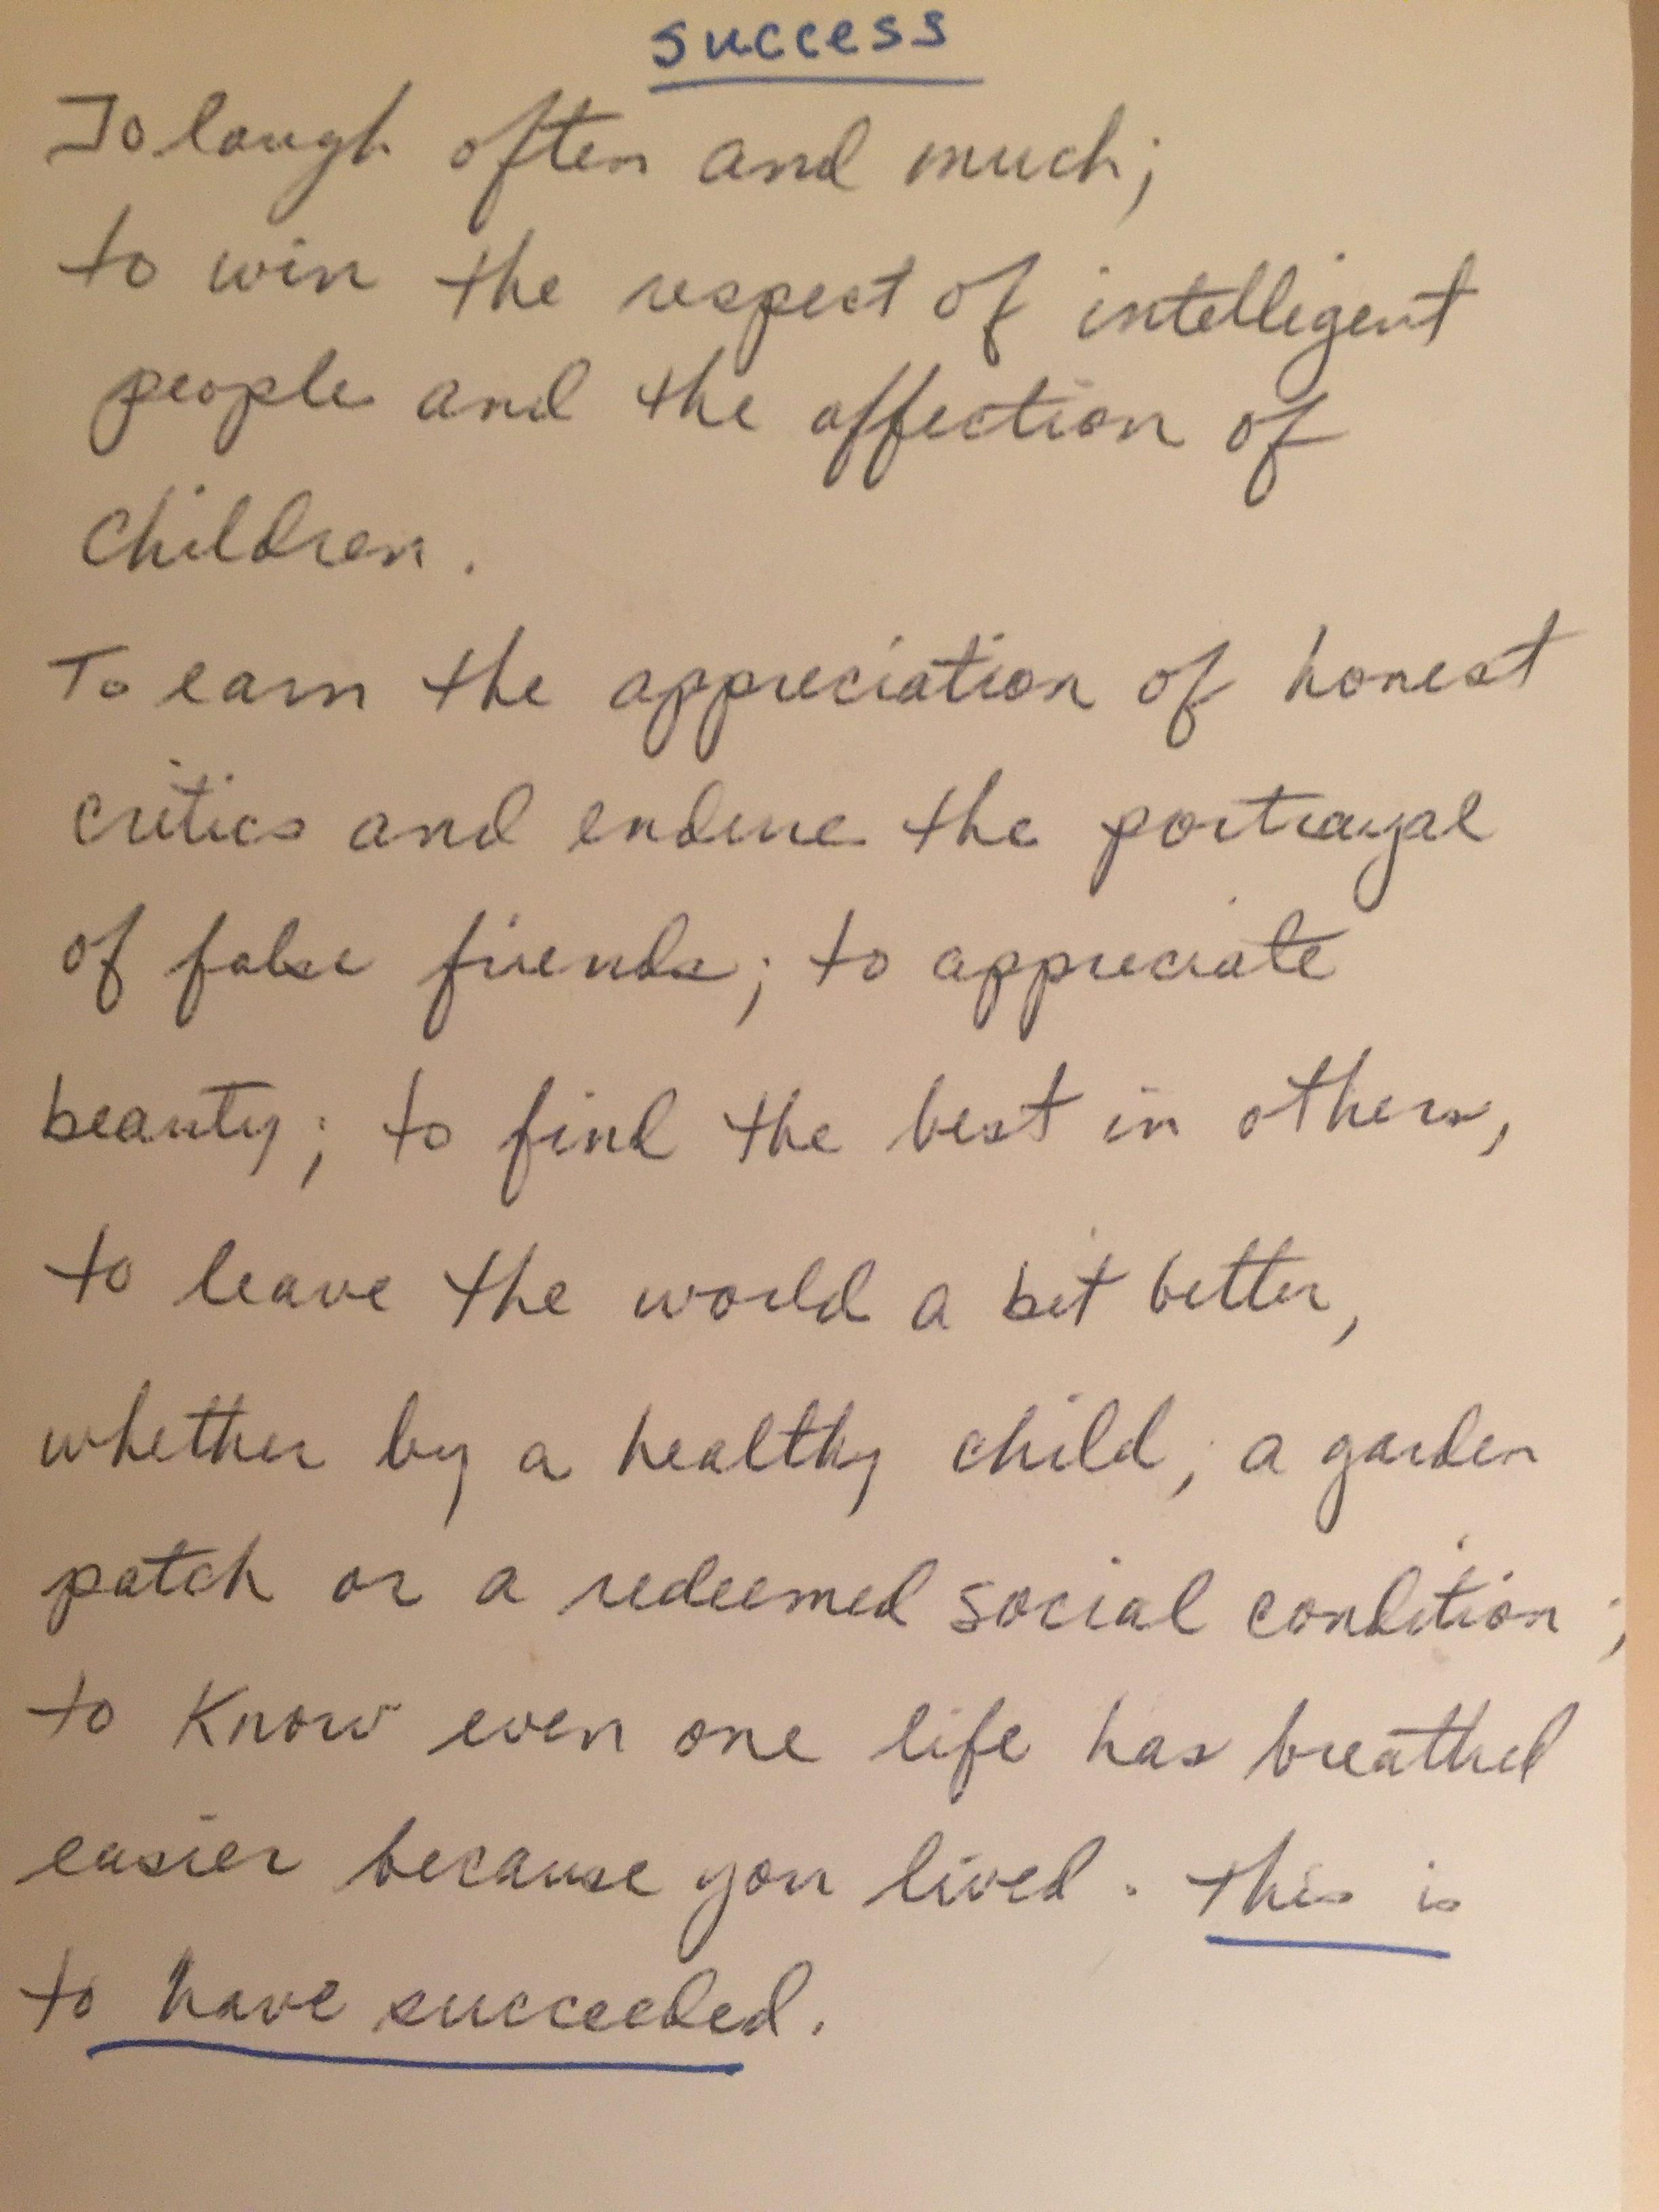 success
To laugh often and much;
to win the respect of intelligent
people and the affection of
children.
To earn the appreciation of honest
critics and endure the portrayal
of false friends; to appreciate
beauty; to find the best in others,
to leave the world a bit better,
whether by a healthy child, a garden
patch or a redeemed social condition;
to know even one life has breathed
easier because you lived. this is
to have succeeded.